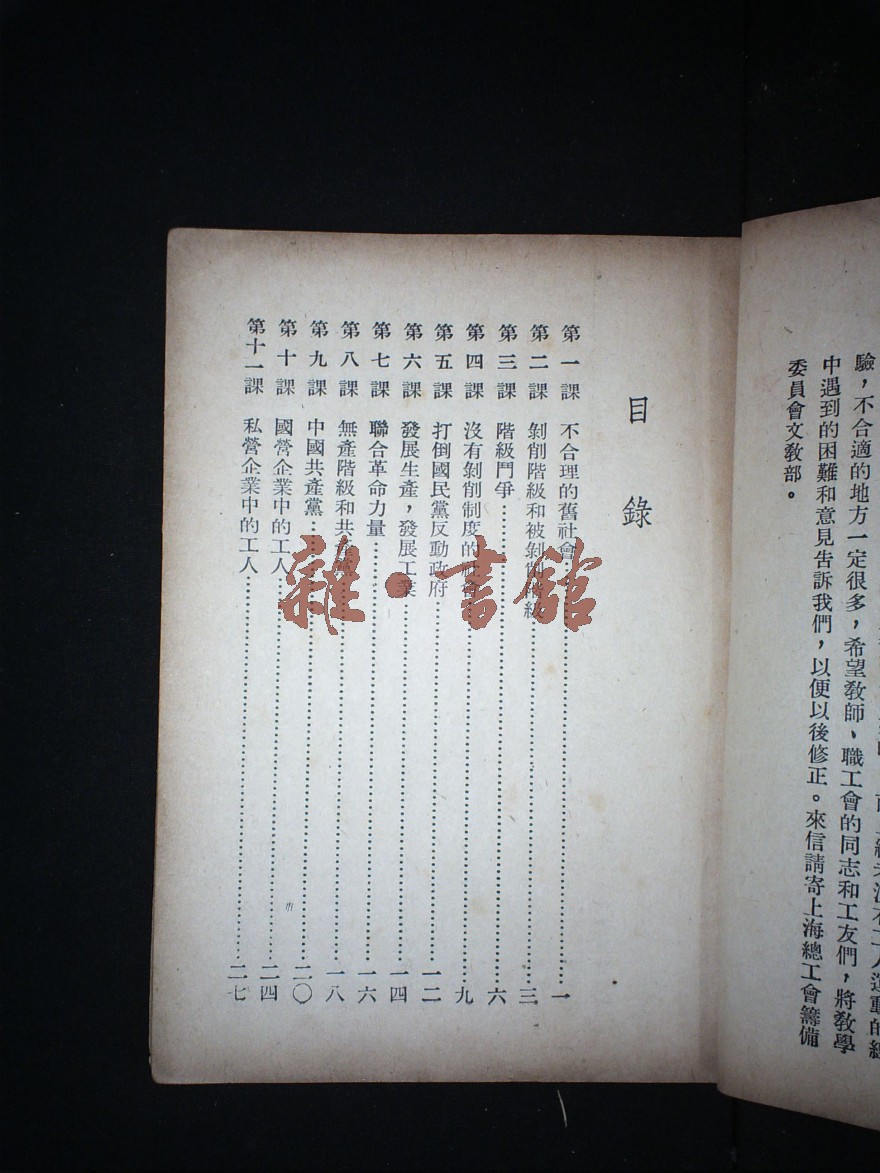 驗，不合適的地方一定很多，希望教師、職工會的同志和工友們，將教學
中遇到的困難和意見告訴我們，以便以後修正。來信請寄上海總工會籌備
委員會文教部。
目錄
第一課 不合理的舊社會……一
第二課 剝削階級和被剝削階級……三
第三課 階級鬥爭……六
第四課 沒有剝削制度的社會……九
第五課 打倒國民黨反動政府……一二
第六課 發展生產，發展工業……一四
第七課 聯合革命力量……一六
第八課 無產階級和共產黨……一八
第九課 中國共產黨……二〇
第十課 國營企業中的工人……二四
第十一課 私營企業中的工人……二七
雜·書館